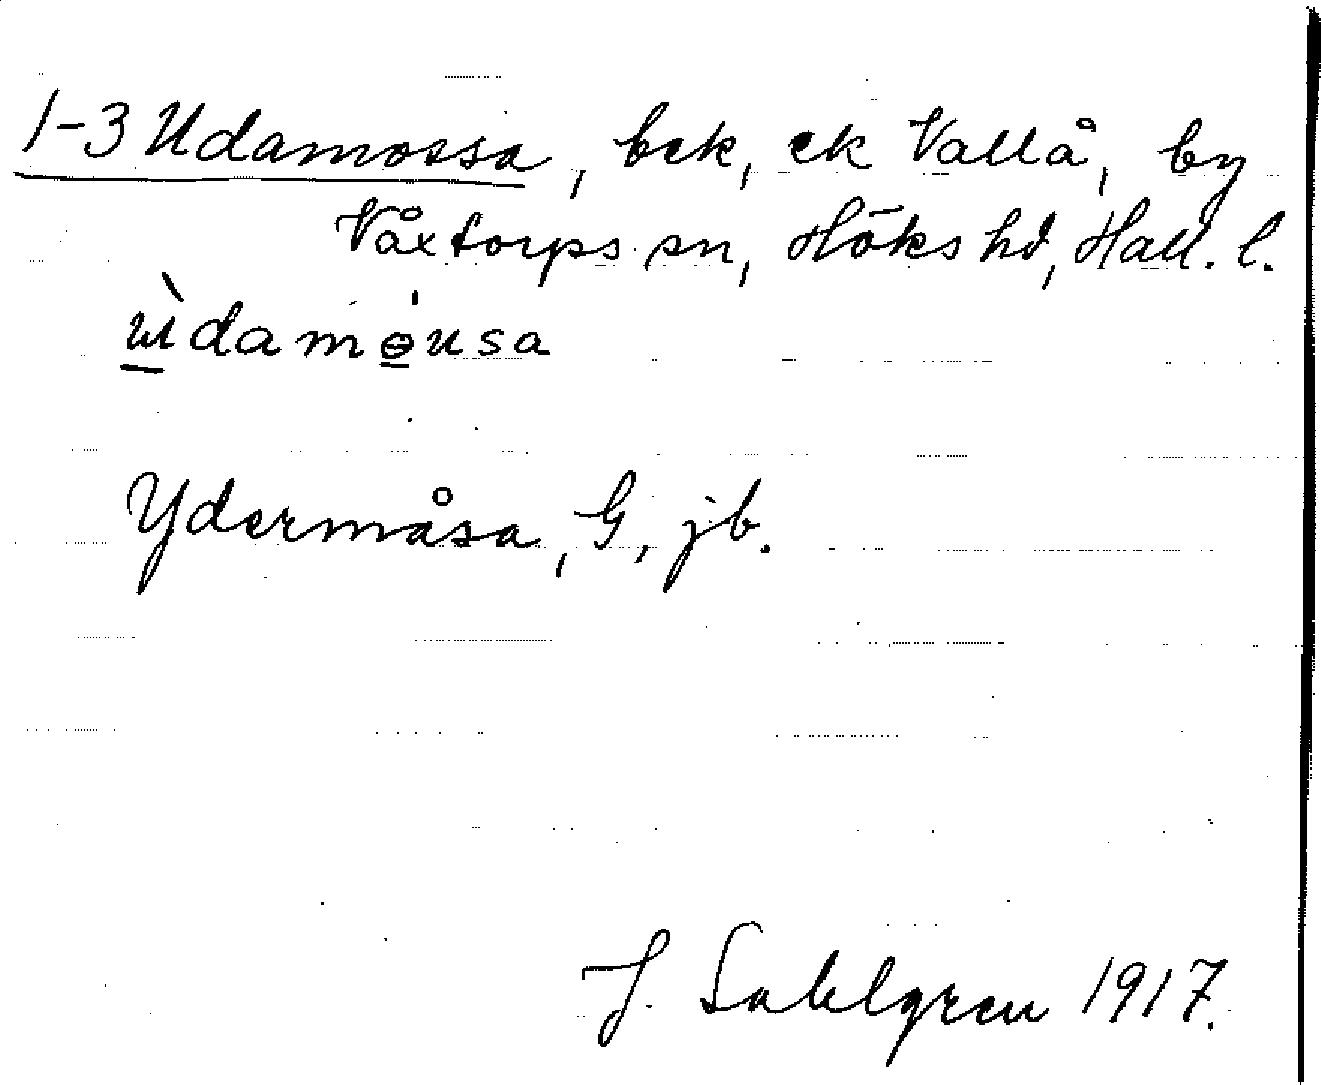 1-3 Udamossa, bek, ek Vallå, by
Våxtorps sn, Höks hd, Hall. l.
ɯ̀damɵ́usa
Ydermåsa, G, jb.
J. Sahlgren 1917.